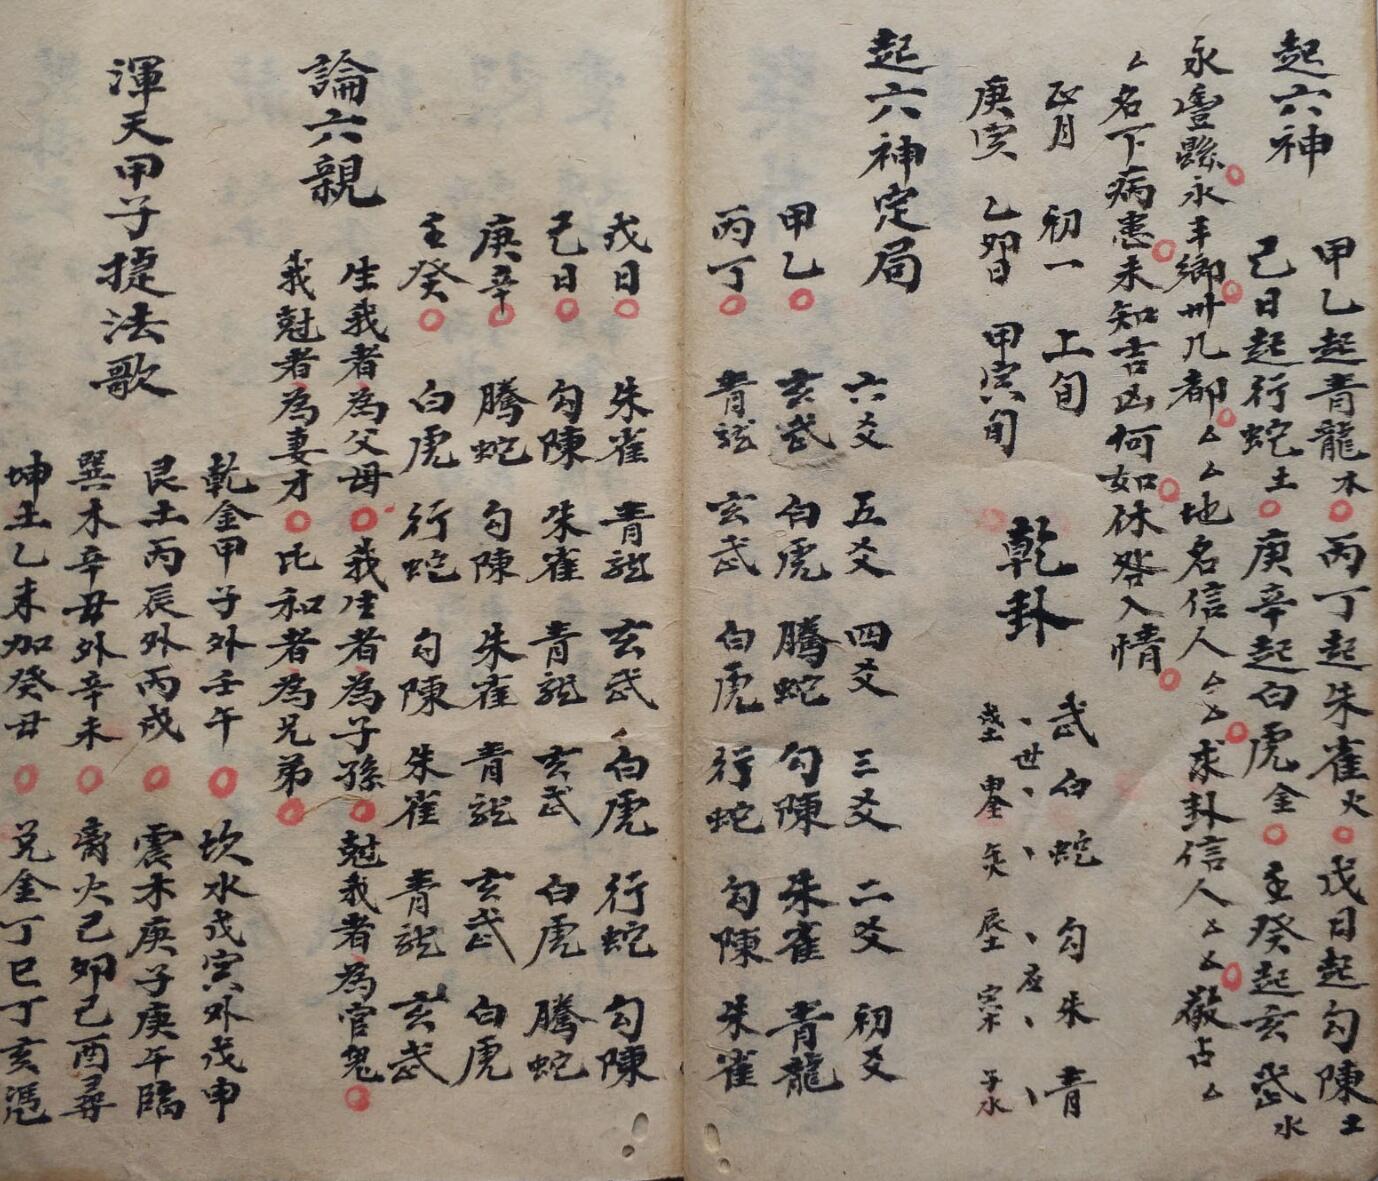 起六神
甲乙起青龍木 丙丁起朱雀火 戊日起勾陳土
己日起行蛇土 庚辛起白虎金 壬癸起玄武水
永豐縣永丰鄉卅几都厶厶地名信人厶厶求卦信人厶厶敬占厶
厶名下病患未知吉凶何如休咎入情
正月 初一 上旬
庚寅 乙卯日 甲寅旬
乾卦
武 白 蛇 勾 朱 青
、世、、、应、、
戌土 申金 午火 辰土 寅木 子水
起六神定局
六爻 五爻 四爻 三爻 二爻 初爻
甲乙 玄武 白虎 騰蛇 勾陳 朱雀 青龍
丙丁 青龙 玄武 白虎 行蛇 勾陳 朱雀
戊日 朱雀 青龙 玄武 白虎 行蛇 勾陳
己日 勾陳 朱雀 青龙 玄武 白虎 騰蛇
庚辛 騰蛇 勾陳 朱雀 青龙 玄武 白虎
壬癸 白虎 行蛇 勾陳 朱雀 青龙 玄武
論六親
生我者為父母 我生者為子孫 尅我者為官鬼
我尅者為妻才 比和者為兄弟
渾天甲子捷法歌
乾金甲子外壬午 坎水戊寅外戊申
艮土丙辰外丙戌 震木庚子庚午臨
巽木辛丑外辛未 离火己卯己酉尋
坤土乙未加癸丑 兑金丁巳丁亥憑